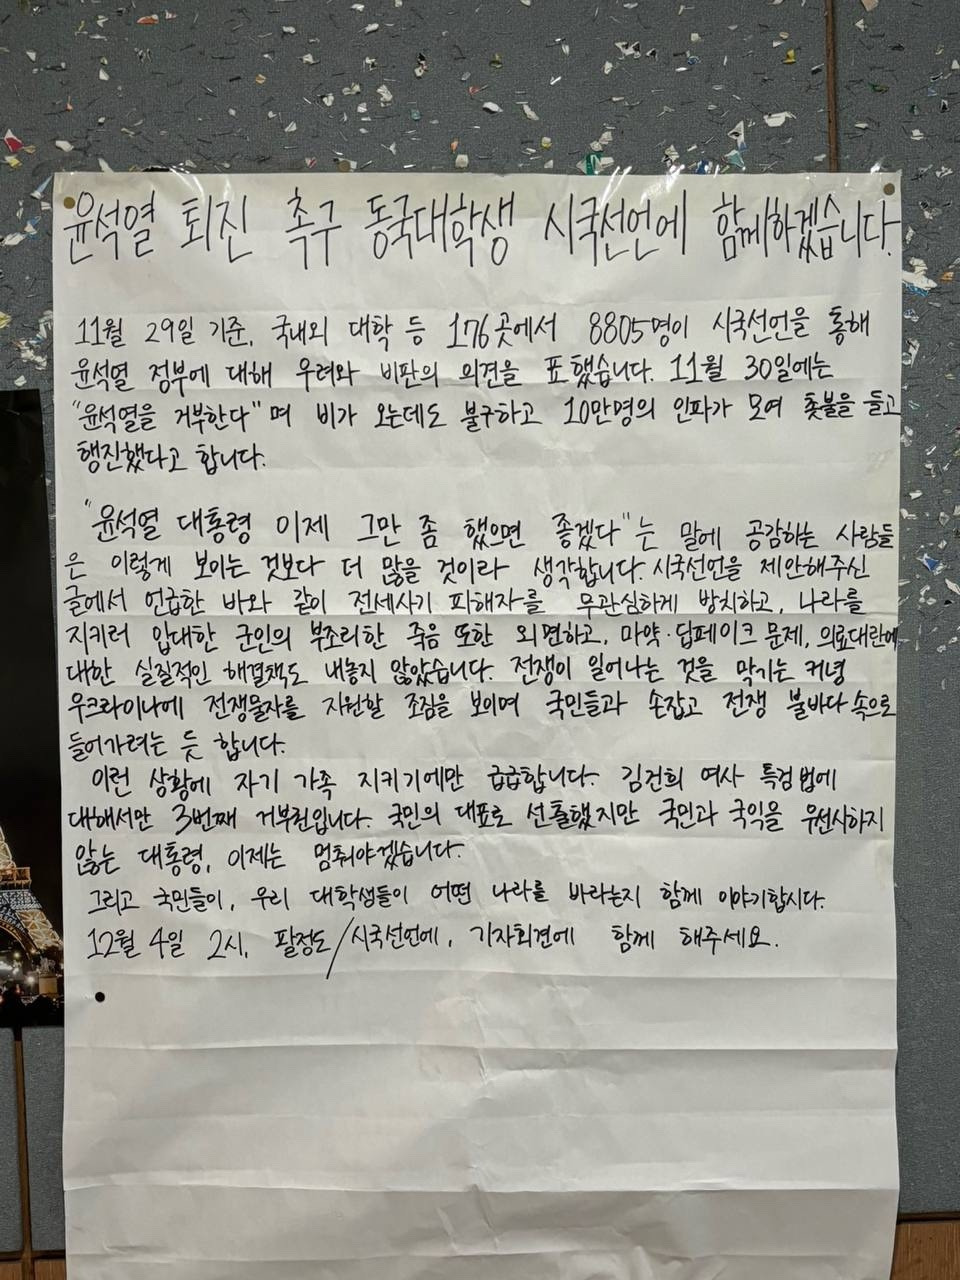 윤석열 퇴진 촉구 동국대학생 시국선언에 함께하겠습니다.
11월 29일 기준, 국내외 대학 등 176곳에서 8805명이 시국선언을 통해
윤석열 정부에 대해 우려와 비판의 의견을 표했습니다. 11월 30일에는
"윤석열을 거부한다"며 비가 오는데도 불구하고 10만명의 인파가 모여 촛불을 들고
행진했다고 합니다.
"윤석열 대통령 이제 그만 좀 했으면 좋겠다"는 말에 공감하는 사람들
은 이렇게 보이는 것보다 더 많을 것이라 생각합니다. 시국선언을 제안해주신
글에서 언급한 바와 같이 전세사기 피해자를 무관심하게 방치하고, 나라를
지키러 입대한 군인의 부조리한 죽음 또한 외면하고, 마약·딥페이크 문제, 의료대란에
대한 실질적인 해결책도 내놓지 않았습니다. 전쟁이 일어나는 것을 막기는 커녕
우크라이나에 전쟁물자를 지원할 조짐을 보이며 국민들과 손잡고 전쟁 불바다 속으로
들어가려는 듯 합니다.
이런 상황에 자기 가족 지키기에만 급급합니다. 김건희 여사 특검법에
대해서만 3번째 거부권입니다. 국민의 대표로 선출했지만 국민과 국익을 우선시하지
않는 대통령, 이제는 멈춰야겠습니다.
그리고 국민들이, 우리 대학생들이 어떤 나라를 바라는지 함께 이야기합시다.
12월 4일 2시, 팔정도/시국선언에, 기자회견에 함께 해주세요.